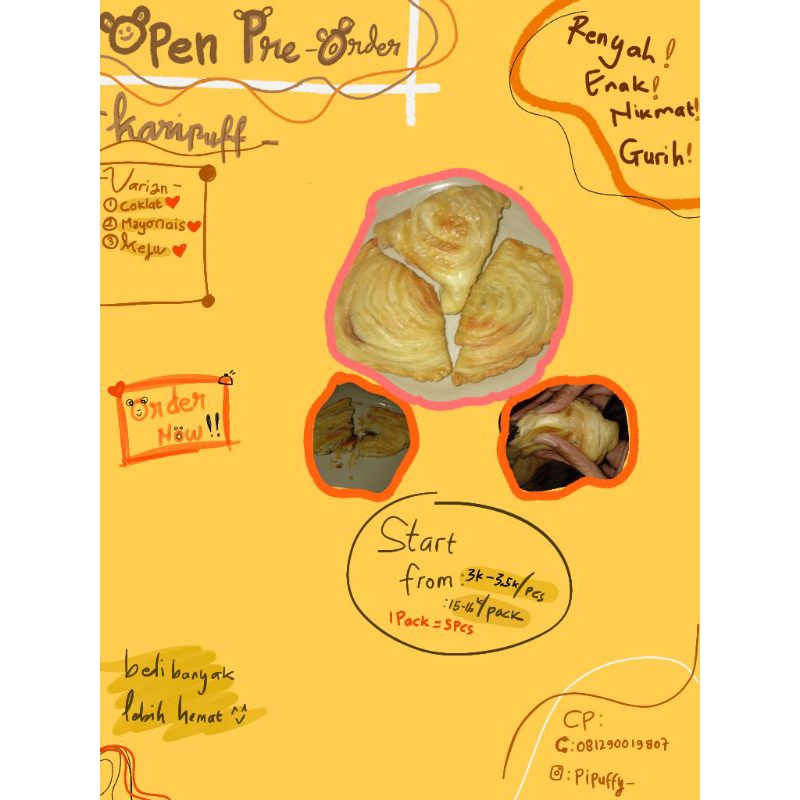 Open Pre-Order
-karipuff-
Renyah!
Enak!
Nikmat!
Gurih!
-Varian-
① Coklat
② Mayonais
③ Keju
Order
Now!!
Start
from :3k-3,5k/pcs
:15-16k/pack
1 Pack = 5 Pcs
beli banyak
lebih hemat ^^
CP:
:081290019807
:Pipuffy_